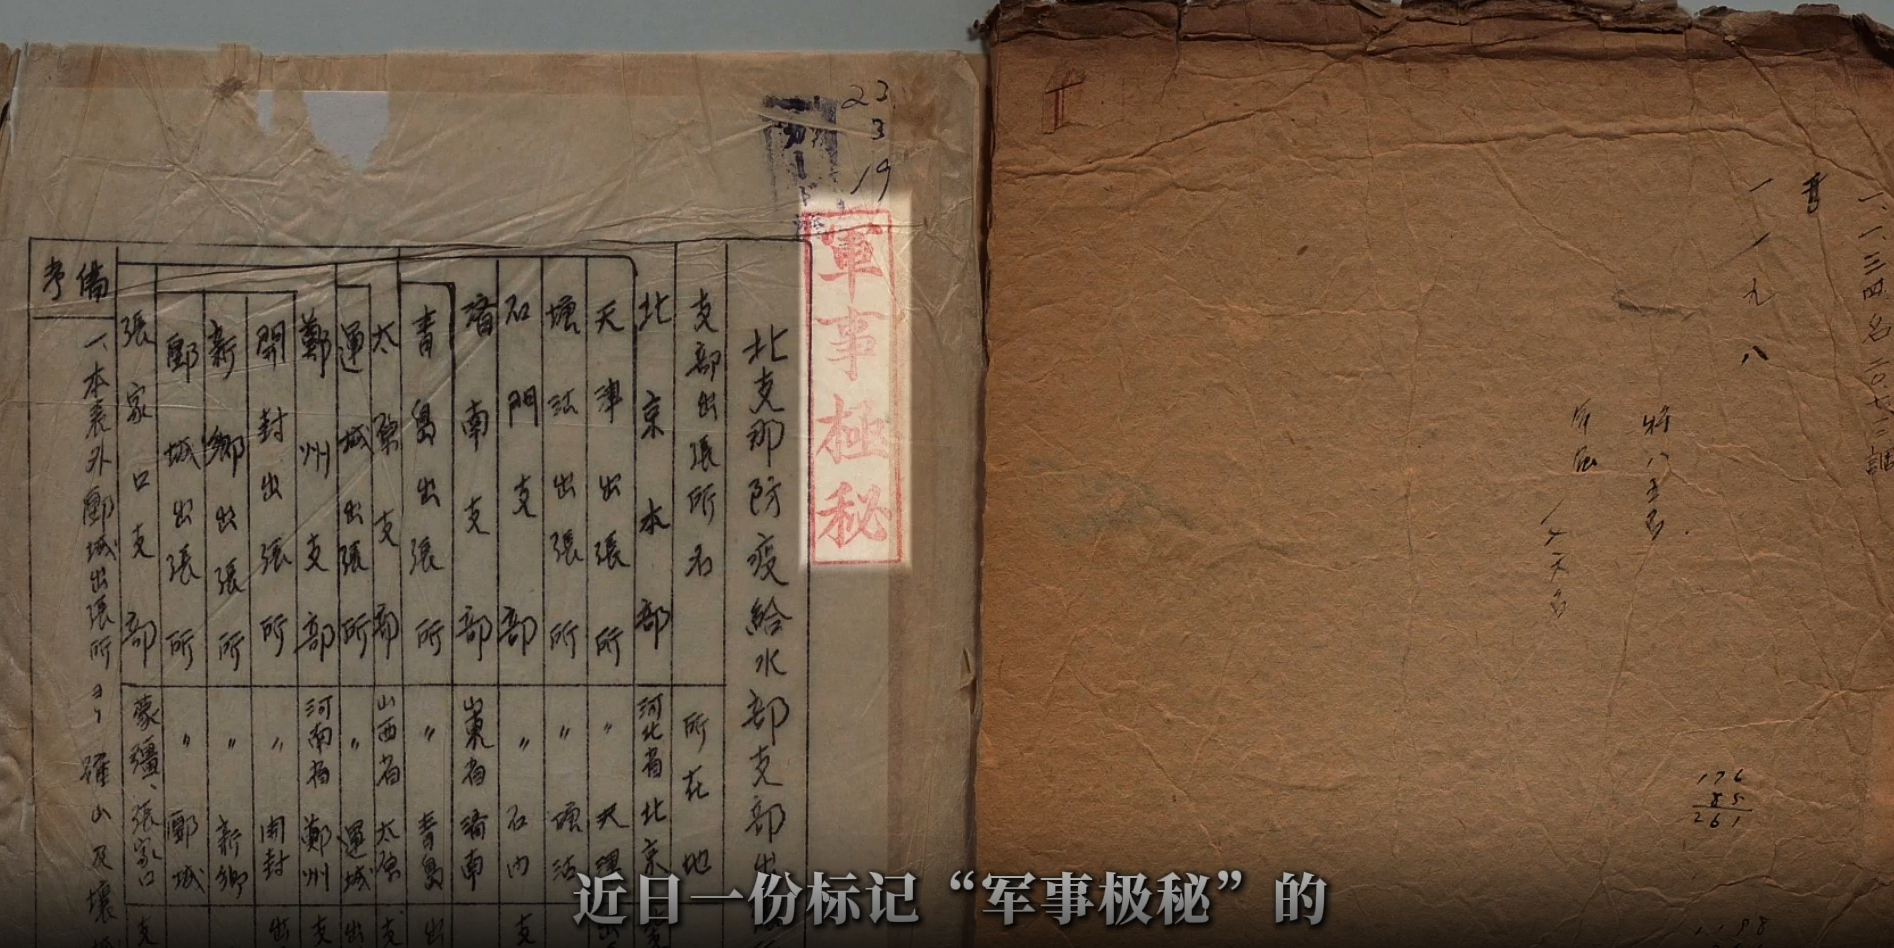 23
3
19
軍事極秘
北支那防疫給水部支部出
支部出張所名
所在地
北京本部
河北省北京
天津出張所
〃
天津
塘沽出張所
〃
塘沽
石門支部
〃
石门
濟南支部
山東省濟南
青島出張所
〃
青島
太原支部
山西省太原
運城出張所
〃
運城
鄭州支部
河南省鄭州
開封出張所
〃
開封
新鄉出張所
〃
新鄉
郾城出張所
〃
郾城
張家口支部
蒙疆、張家口
備考
一、本表外郾城出張所ヨリ確山及壤
一、一、三四名
一一九八
176
85
261
1198
近日一份标记“军事极秘”的